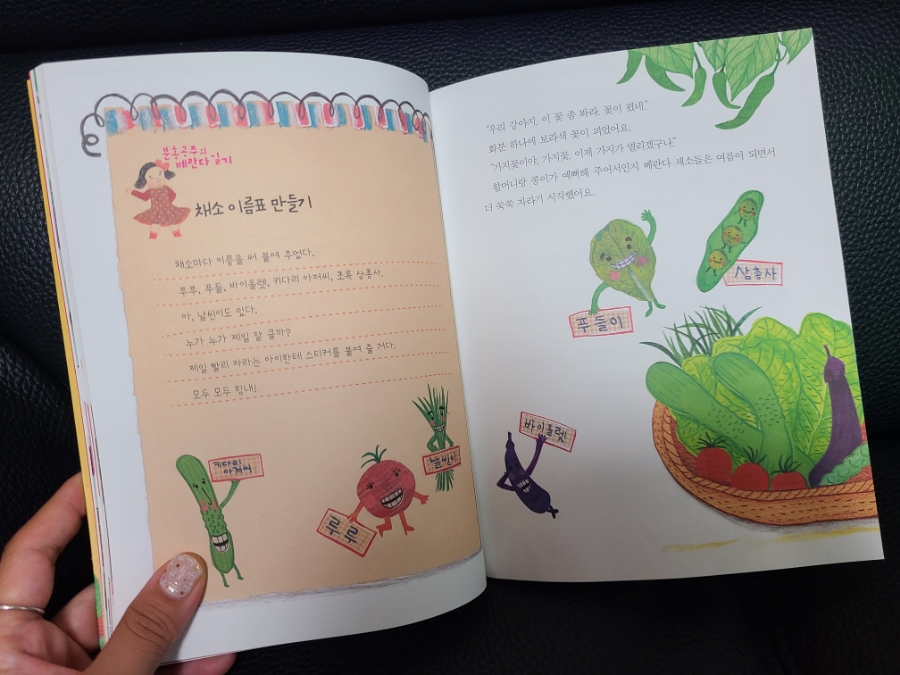 분홍공주의
베란다 일기
채소 이름표 만들기
채소마다 이름을 써 붙여 주었다.
루루, 푸들, 바이올렛, 키다리 아저씨, 초록 삼총사.
아, 날씬이도 있다.
누가 누가 제일 잘 클까?
제일 빨리 자라는 아이한테 스티커를 붙여 줄 거다.
모두 모두 힘내!
키다리
아저씨
루루
날씬이
"우리 강아지, 이 꽃 좀 봐라. 꽃이 폈네."
화분 하나에 보라색 꽃이 피었어요.
"가지꽃이야, 가지꽃. 이제 가지가 열리겠구나."
할머니랑 콩이가 예뻐해 주어서인지 베란다 채소들은 여름이 되면서
더 쑥쑥 자라기 시작했어요.
푸들이
삼총사
바이올렛